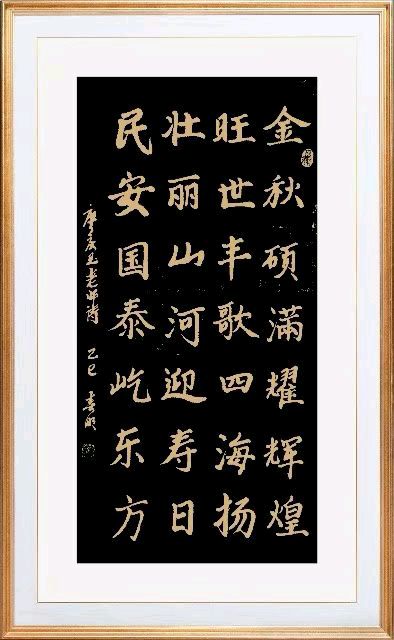 金秋硕满耀辉煌
旺世丰歌四海扬
壮丽山河迎寿日
民安国泰屹东方
廖庆五老师诗 乙巳 春明